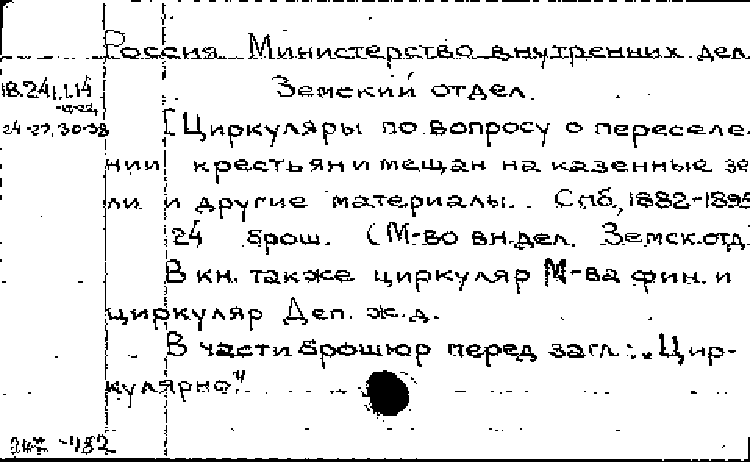 Россия. Министерство внутренних дел.
18.241.1.14 Земский отдел.
24-27,30-38 [Циркуляры по вопросу о переселе-
нии крестьян и мещан на казенные зе
ли и другие материалы. Спб, 1882-1895
24 брош. (М-во вн.дел. Земск.отд)
В кн. также циркуляр М-ва фин. и
циркуляр Деп. ж.д.
В части брошюр перед загл.: „Цир-
кулярно"